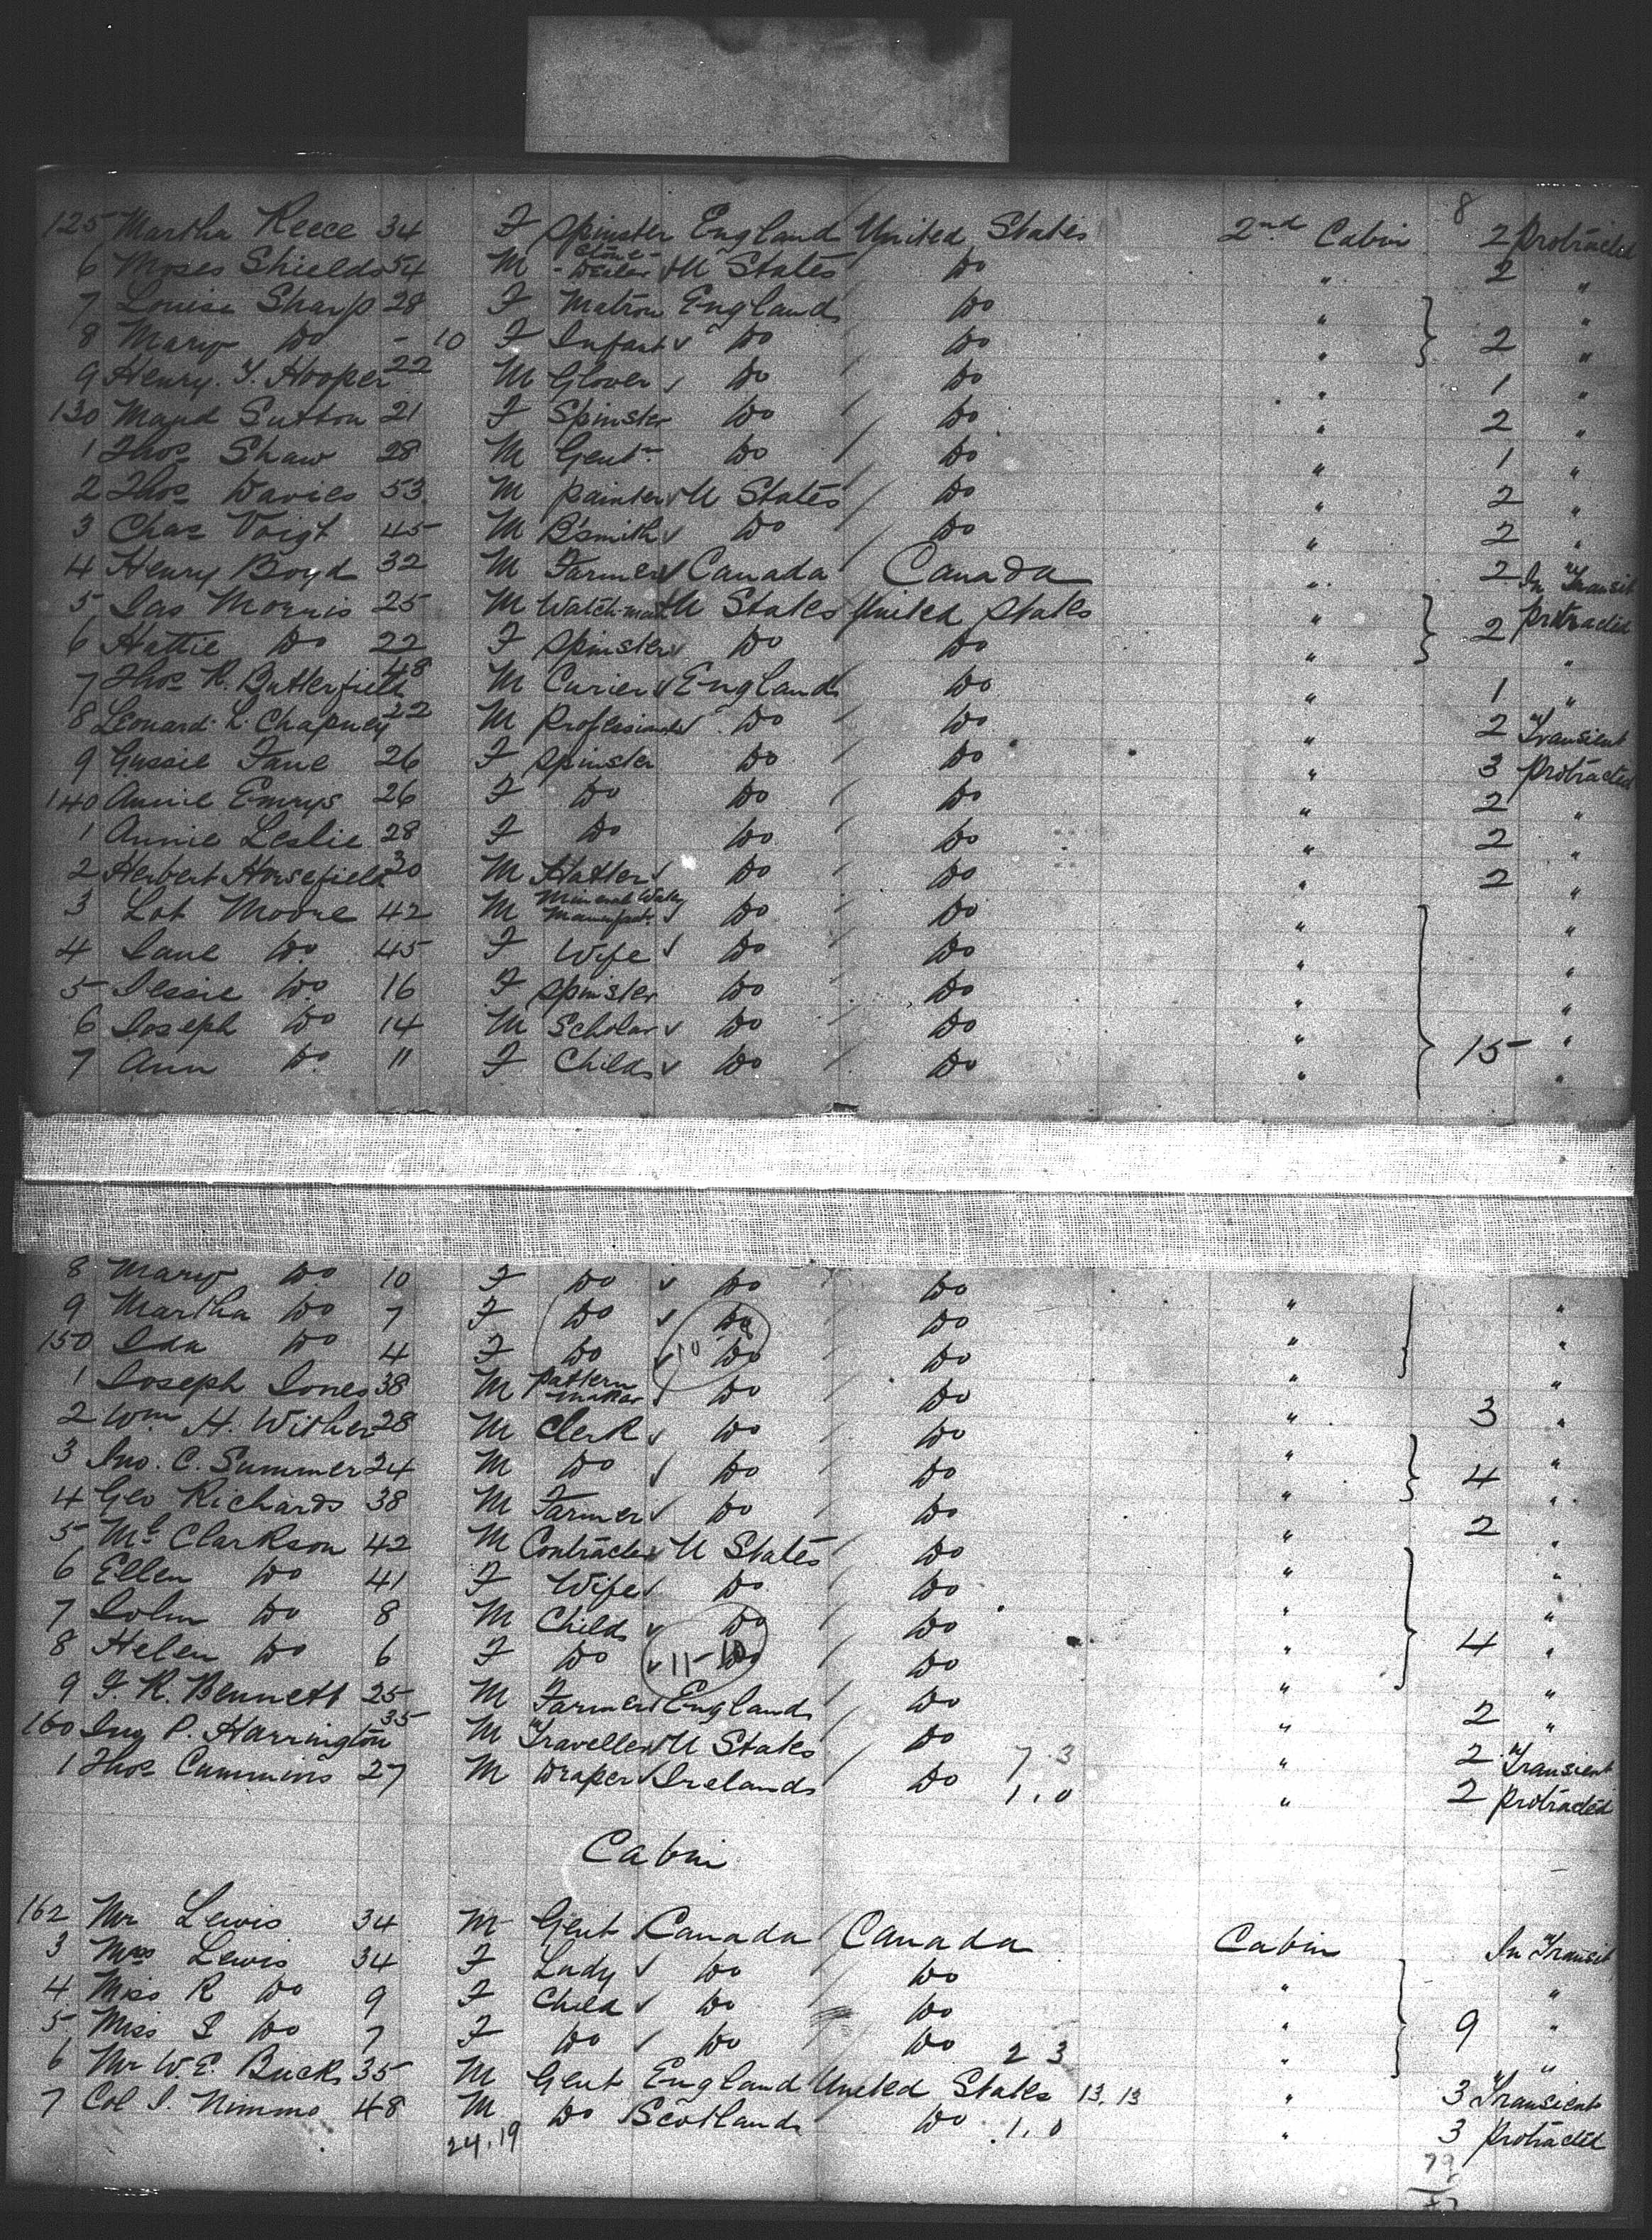 8
125 Martha Reece 34 F Spinster England United States 2nd Cabin 2 Protracted
6 Moses Shields 54 M Stone-Dealer U States Do " 2 "
7 Louisa Sharp 28 F Matron England Do " "
8 Mary Do - 10 F Infant Do Do " 2 "
9 Henry. T. Hooper 22 M Glover Do Do " 1 "
130 Maud Sutton 21 F Spinster Do Do " 2 "
1 Thos Shaw 28 M Gent Do Do " 1 "
2 Thos Davies 53 M Painter U States Do " 2 "
3 Chas Voigt 45 M B'smith Do Do " 2 "
4 Henry Boyd 32 M Farmer Canada Canada " 2 In Transit
5 Jas Morris 25 M Watch-man U States United States " Protracted
6 Hattie Do 22 F Spinster Do Do " 2 "
7 Thos R. Butterfield 48 M Curier England Do " 1 "
8 Leonard L. Chapney 22 M Professional Do Do " 2 Transient
9 Gussie Fane 26 F Spinster Do Do " 3 Protracted
140 Annie Emrys 26 F Do Do Do " 2 "
1 Annie Leslie 28 F Do Do Do " 2 "
2 Herbert Horsefield 30 M Hatter Do Do " 2 "
3 Lot Moore 42 M Mineral Water Manufactr Do Do " "
4 Jane Do 45 F Wife Do Do " "
5 Jessie Do 16 F Spinster Do Do " "
6 Joseph Do 14 M Scholar Do Do " "
7 Ann Do 11 F Child Do Do " 15 "
8 Mary Do 10 F Do Do Do " "
9 Martha Do 7 F Do Do Do " "
150 Ida Do 4 F Do 10 Do Do " "
1 Joseph Jones 38 M Pattern maker Do Do " 3 "
2 Wm H. Wither 28 M Clerk Do Do " "
3 Jno. C. Summer 24 M Do Do Do " 4 "
4 Geo Richards 38 M Farmer Do Do " 2 "
5 Mc Clarkson 42 M Contractor U States Do " "
6 Ellen Do 41 F Wife Do Do " "
7 John Do 8 M Child Do Do " 4 "
8 Helen Do 6 F Do 11-10 Do Do " "
9 F. R. Bennett 25 M Farmer England Do " 2 "
160 P. Harrington 35 M Traveller U States Do 7.3 " 2 Transient
1 Thos Cummins 27 M Draper Ireland Do 1.0 " 2 Protracted
Cabin
162 Mr Lewis 34 M Gent Canada Canada Cabin In Transit
3 Mrs Lewis 34 F Lady Do Do " "
4 Miss R Do 9 F Child Do Do " 9 "
5 Miss I Do 7 F Do Do Do 2 3 " "
6 Mr W. E. Buck 35 M Gent England United States 13.13 " 3 Transient
7 Col I. Nimmo 48 M Do Scotland Do 1.0 " 3 Protracted
24.19
79